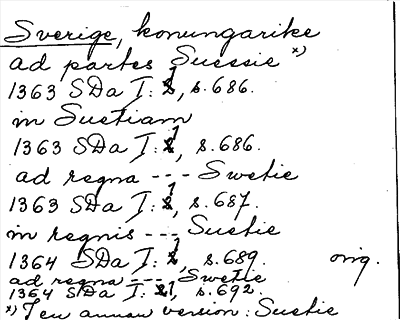 Sverige, konungarike
ad partes Suessie *)
1363 SDa I:1, s.686.
in Suetiam
1363 SDa I:1, s.686.
ad regna --- Swetie
1363 SDa I:1, s.687.
in regnis --- Suetie
1364 SDa I:1, s.689. orig.
ad regna --- Swetie
1364 SDa I:1, s.692.
*) I en annan version: Suetie